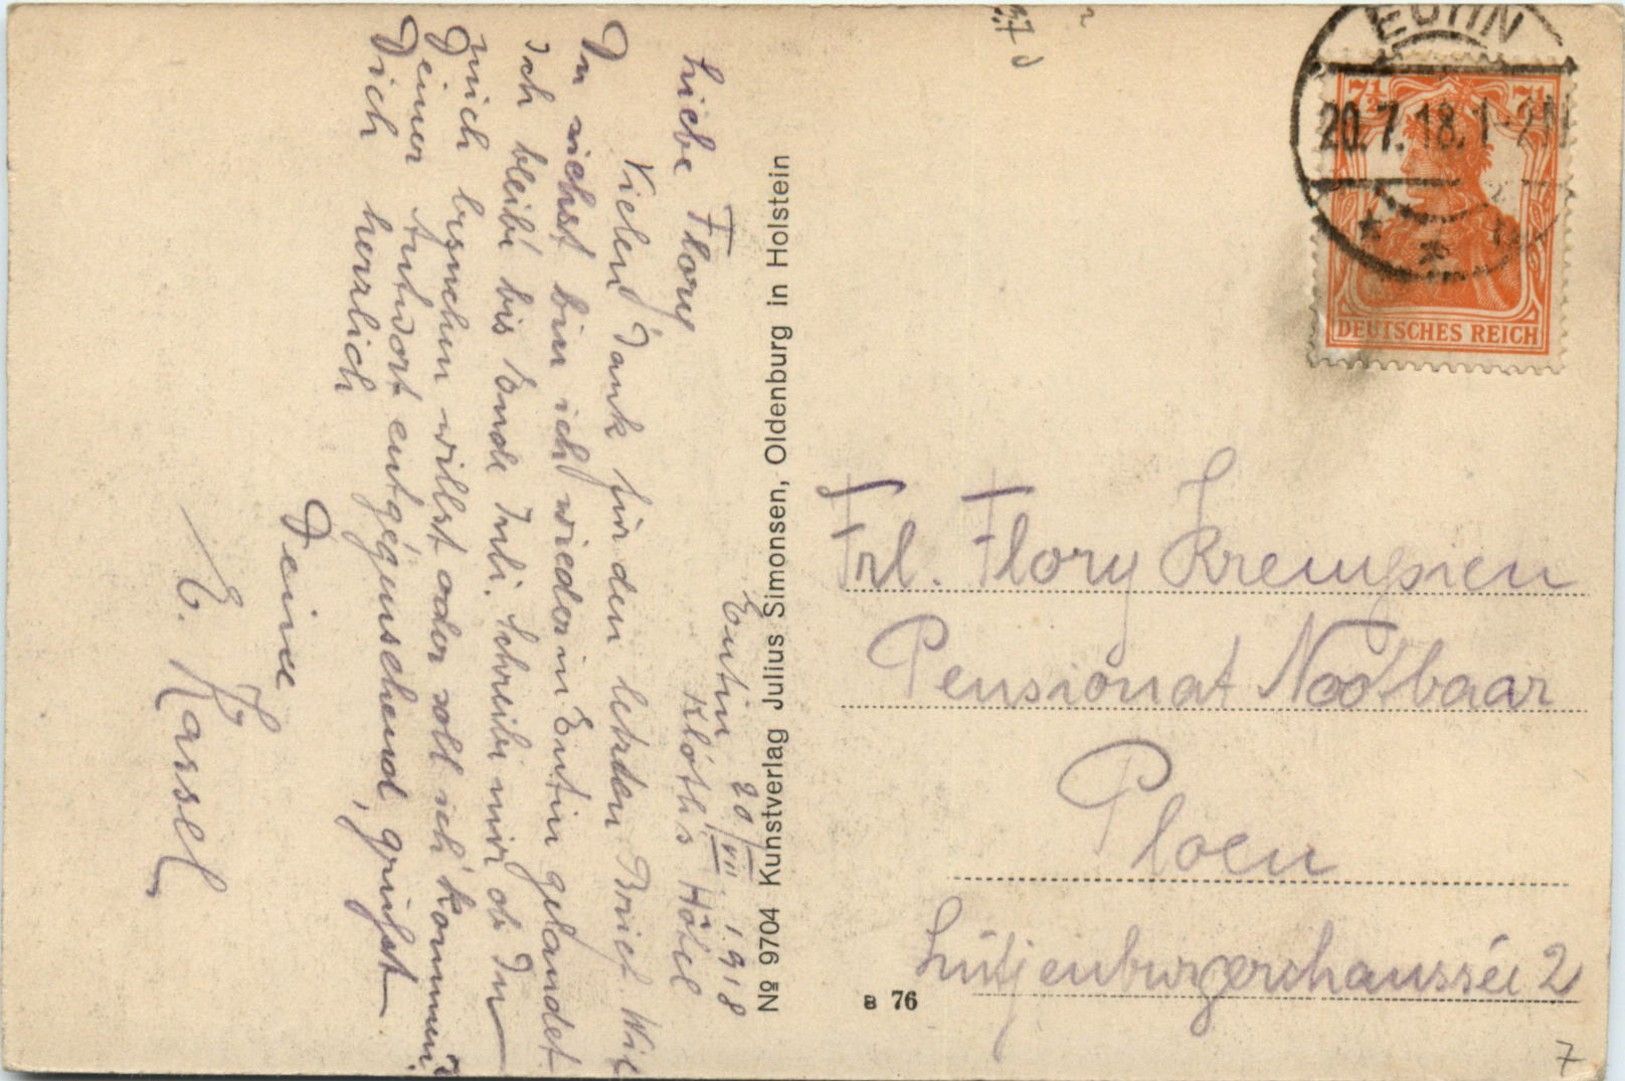 Eutin 20/VII 1918
Klöth's Hôtel
Liebe Flory
Vielen Dank für den letzten Brief. Wie
Du siehst bin ich wieder in Eutin gelandet
Ich bleibe bis Ende Juli. Schreibe mir ob Du
mich besuchen willst oder soll ich kommen?
Deiner Antwort entgegensehend, grüsst
Dich herzlich
Deine
E. Kassel
№ 9704 Kunstverlag Julius Simonsen, Oldenburg in Holstein
EUTIN
20.7.18.1-2N
7½ 7½
DEUTSCHES REICH
Frl. Flory Krempien
Pensionat Nodtbaar
Ploen
Lütjenburgerchaussée 2
B 76
7